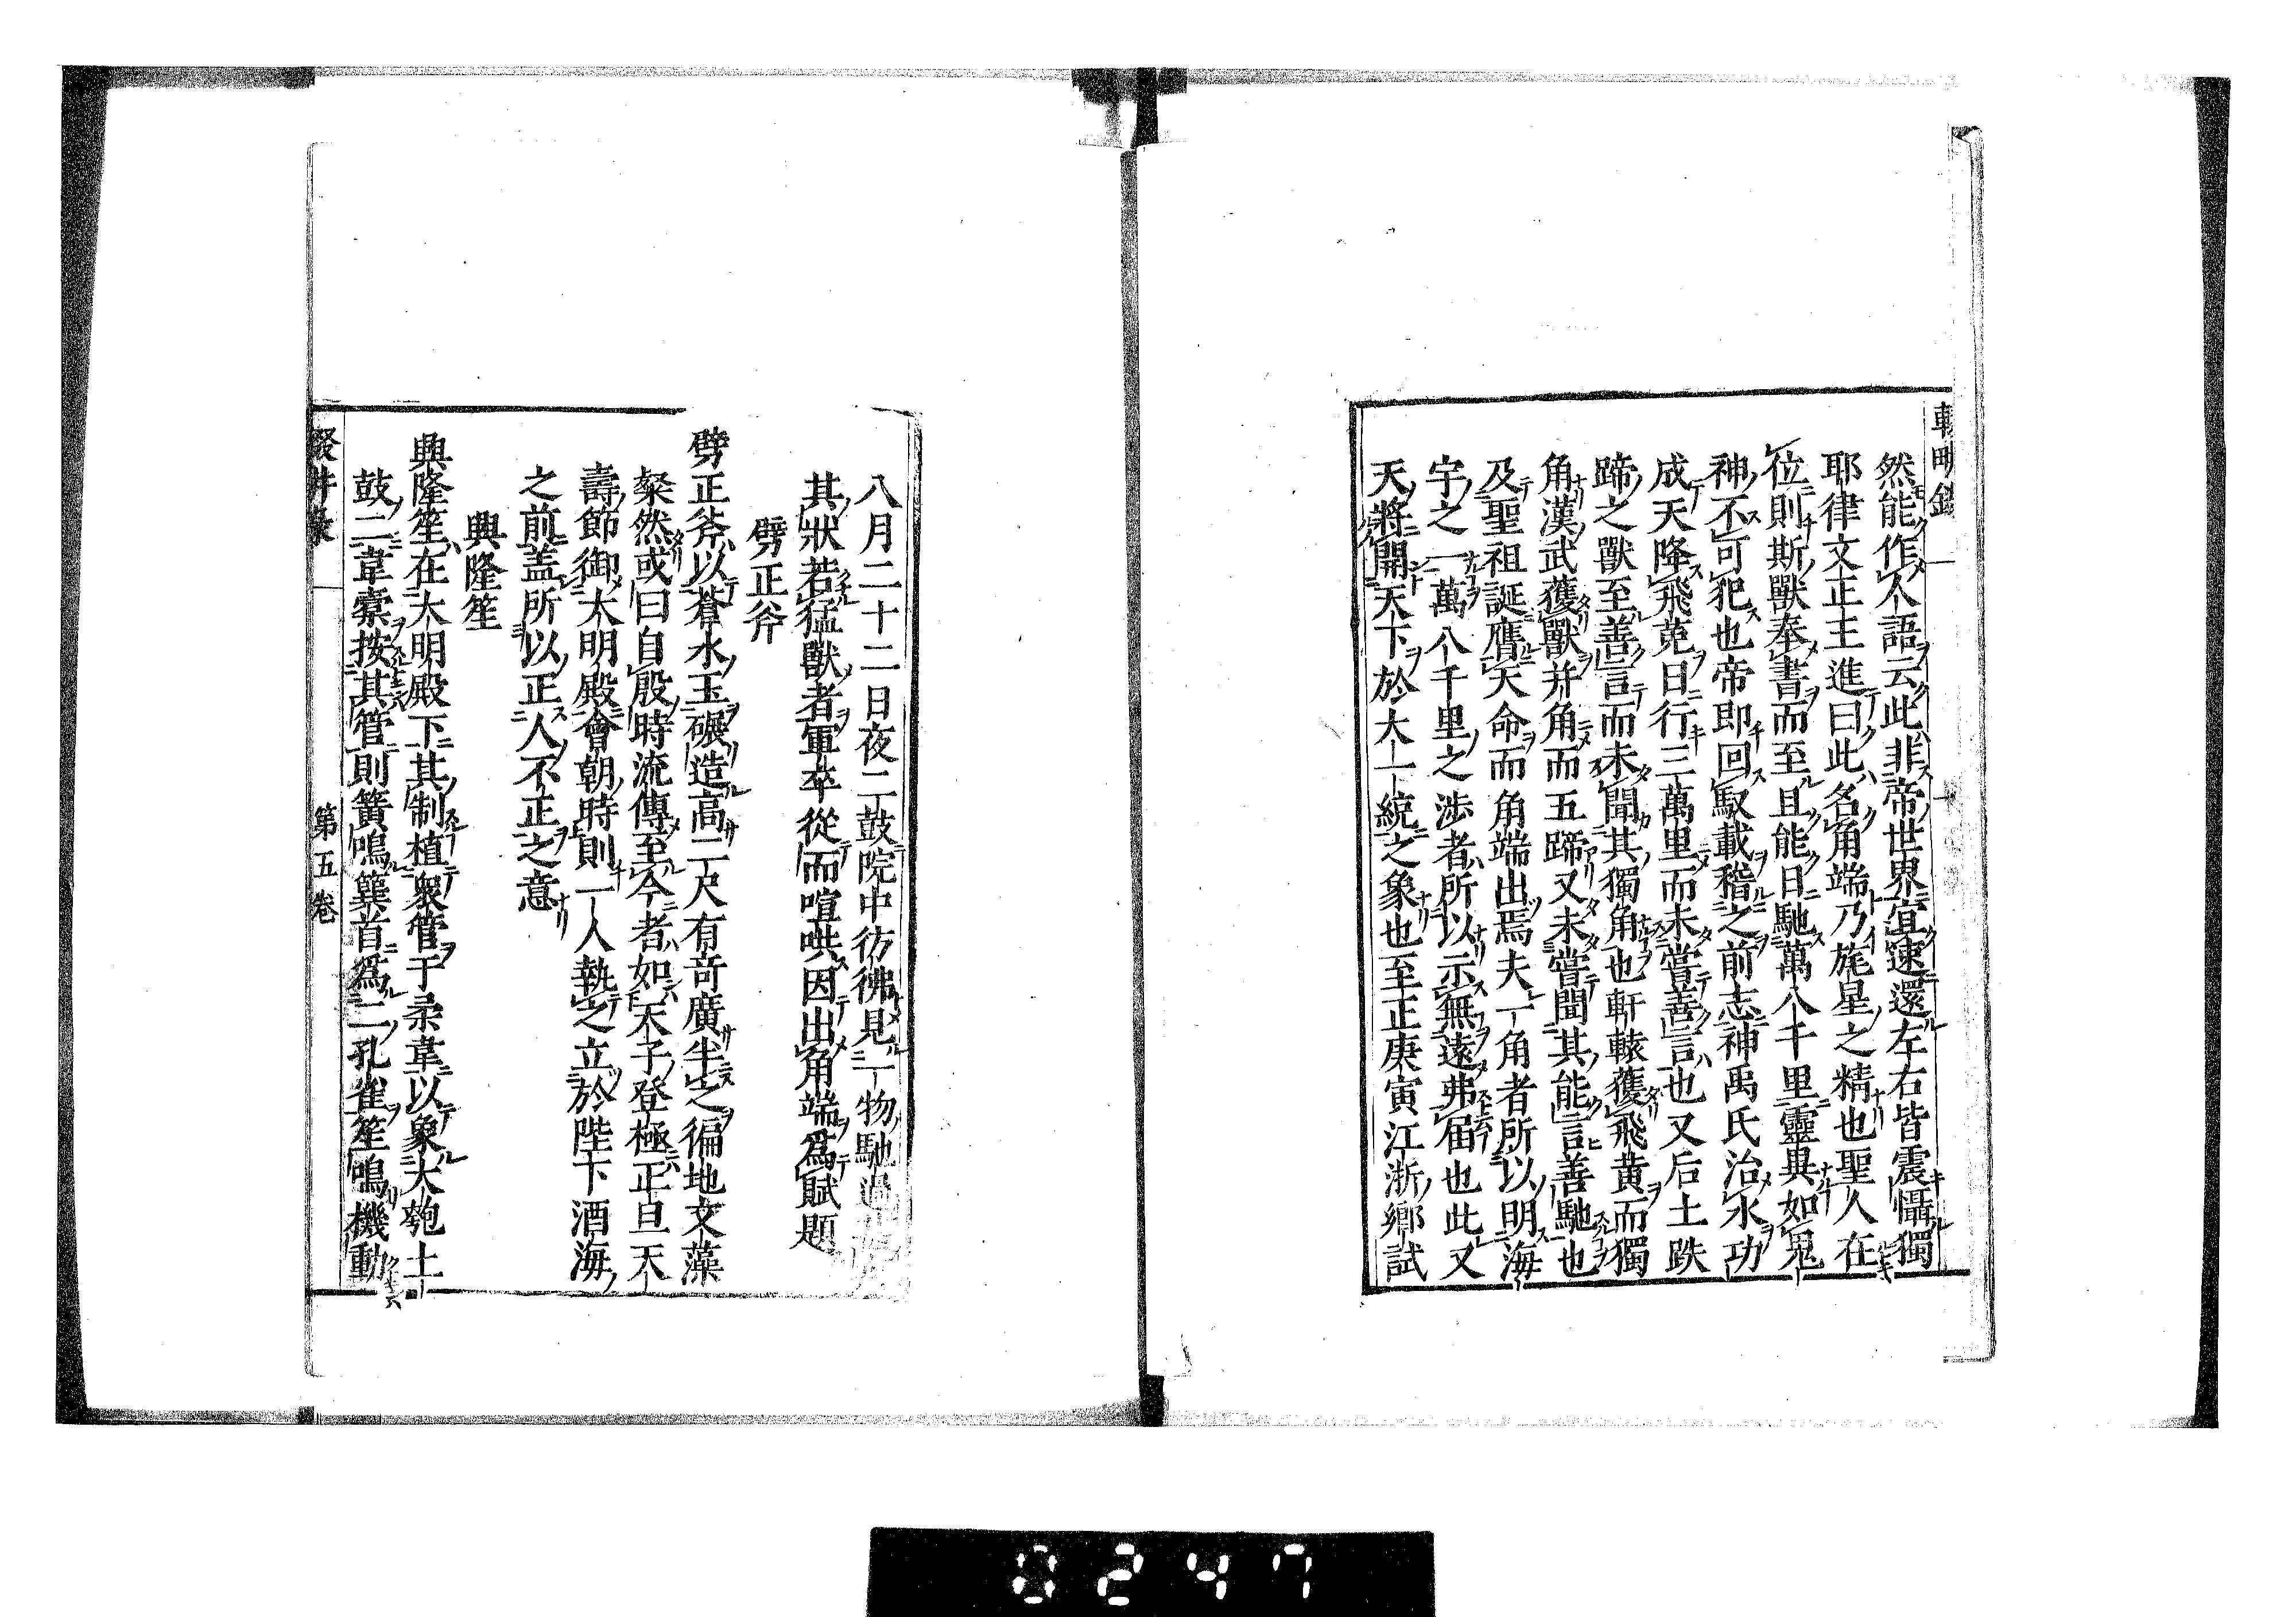 輟畊錄
然能作人語云此非帝世界宜速還左右皆震懾獨
耶律文正王進曰此名角端乃旄星之精也聖人在
位則斯獸奉書而至且能日馳萬八千里靈異如鬼
神不可犯也帝即回馭載稽之前志神禹氏治水功
成天降飛菟日行三萬里而未嘗善言也又后土趺
蹄之獸至善言而未聞其獨角也軒轅獲飛黄而獨
角漢武獲獸并角而五蹄又未嘗聞其能言善馳也
及聖祖誕膺天命而角端出焉夫一角者所以明海
宇之一萬八千里之渉者所以示無遠弗届也此又
天將開天下於大一統之象也至正庚寅江浙鄉試
八月二十二日夜二鼓院中彷彿見一物馳過
其狀若猛獸者軍卒從而喧哄因出角端爲賦題
劈正斧
劈正斧以蒼水玉碾造高二尺有竒廣半之徧地文藻
粲然或曰自殷時流傳至今者如天子登極正旦天
壽節御大明殿會朝時則一人執之立於陛下酒海
之前盖所以正人不正之意
興隆笙
興隆笙在大明殿下其制植衆管于柔韋以象大匏土
鼓二韋橐按其管則簧鳴簨首爲二孔雀笙鳴機動
輟畊錄
第五卷
0247